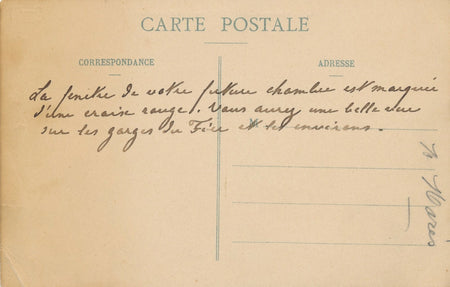 CARTE POSTALE
CORRESPONDANCE
ADRESSE
La fenetre de votre future chambre est marquée
d'une croise rouge. Vous aurez une belle vue
sur les gorges du et les environs.